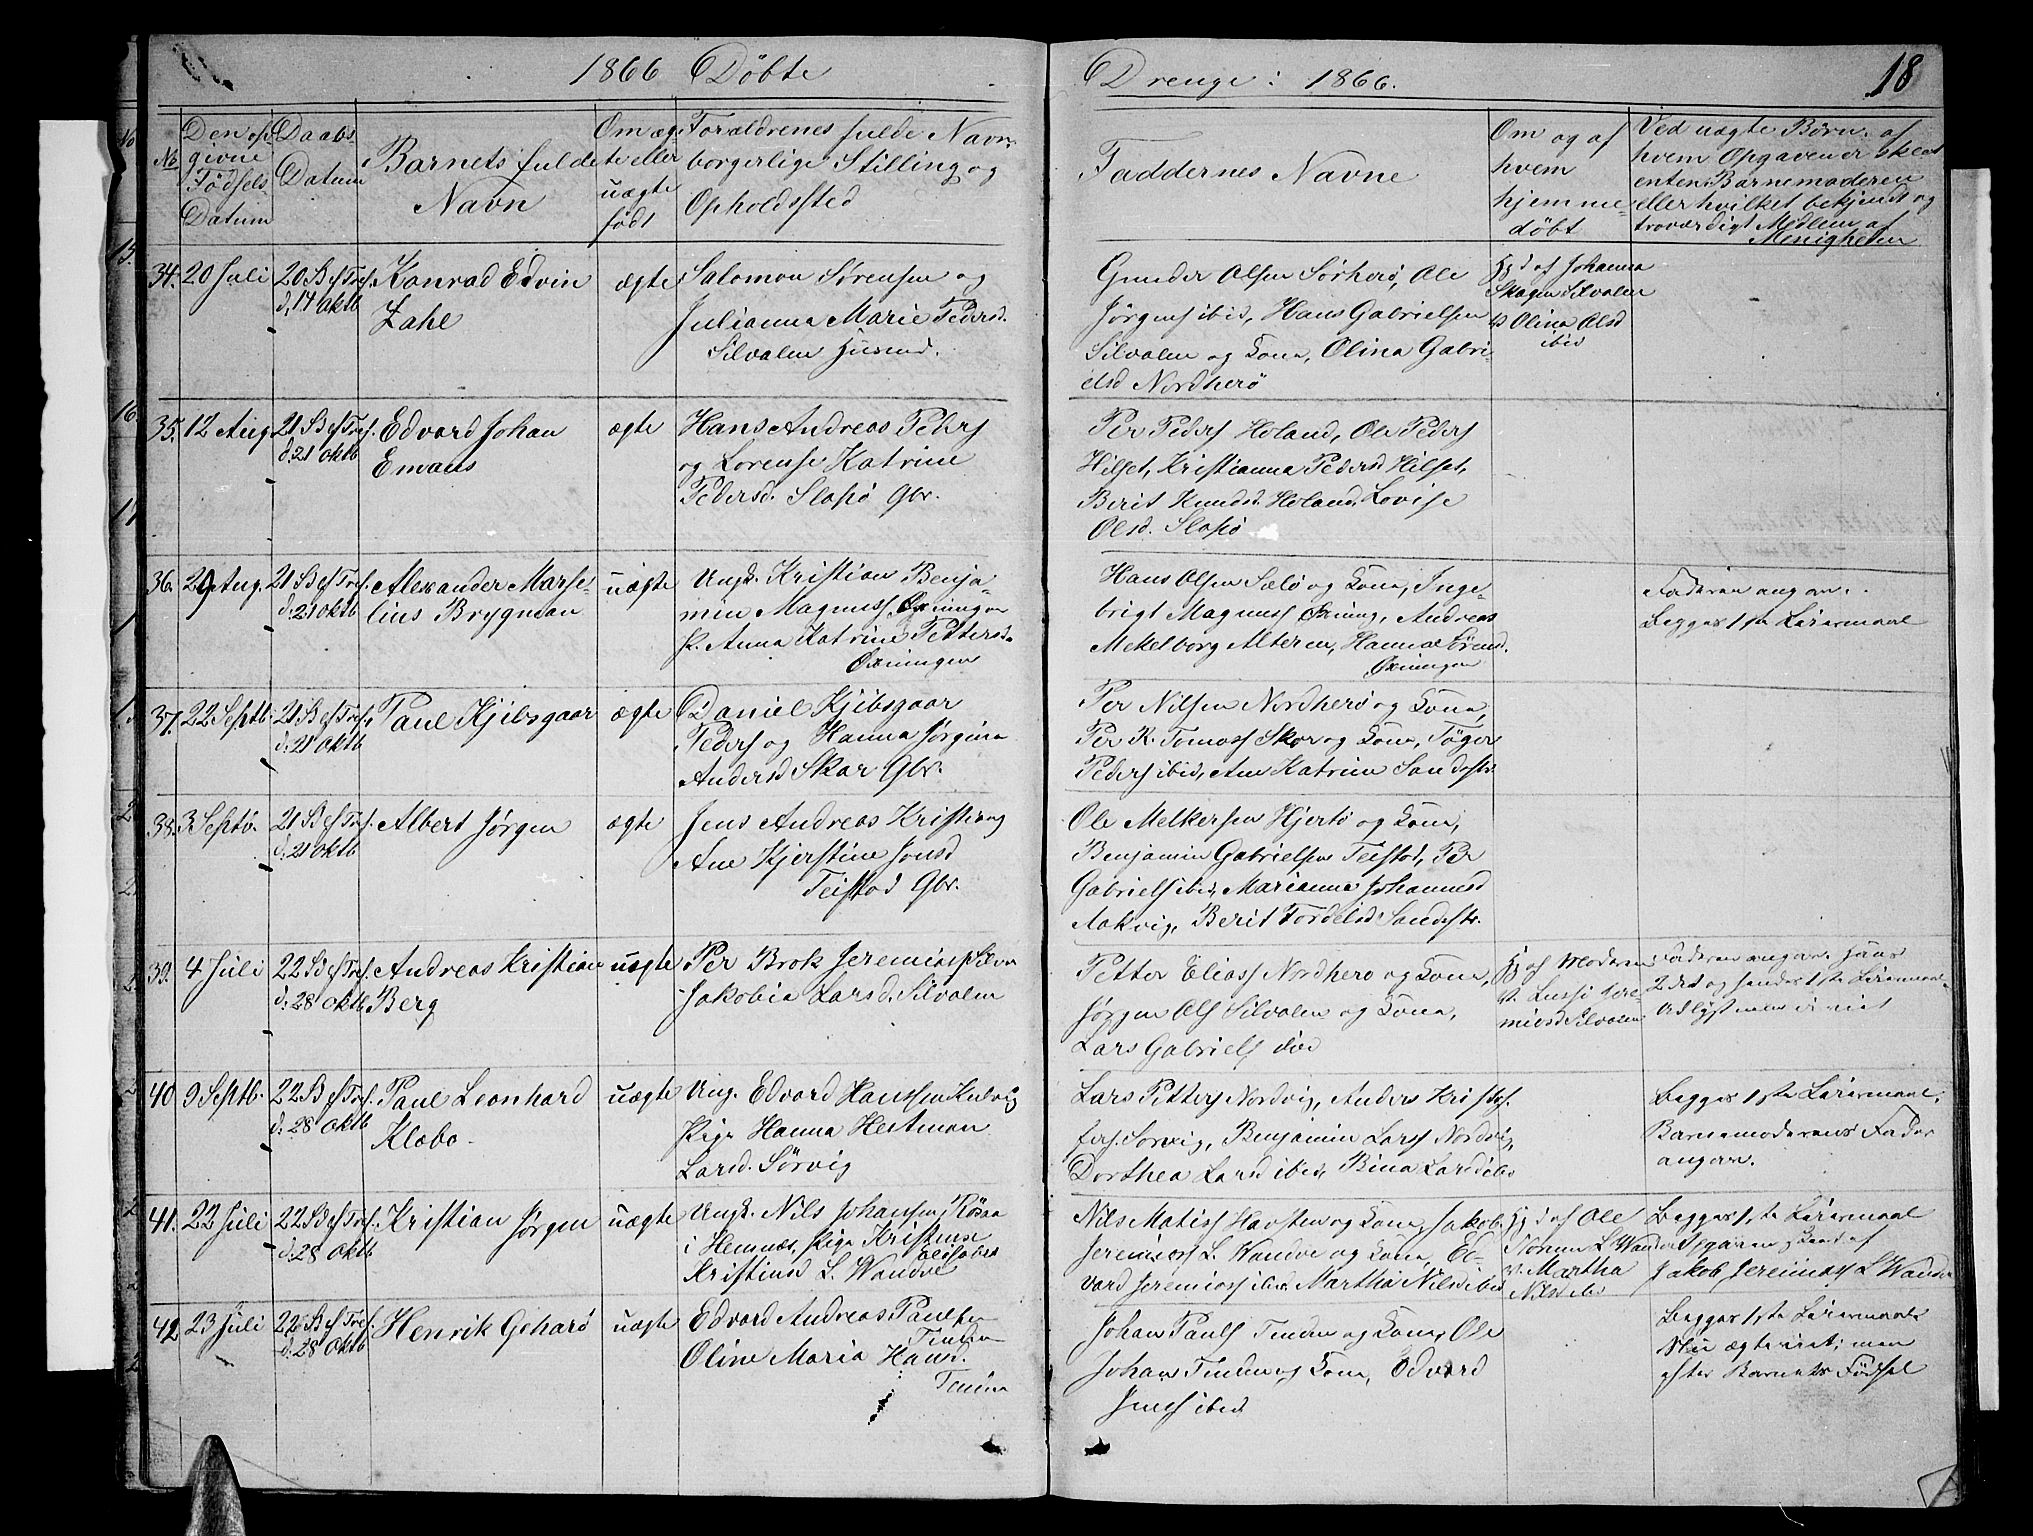 1866 Döbte
Drenge: 1866.
18
No
Den op-
givne
Födsels
Datum
Daabs-
Datum
Barnets fulde
Navn
Om æg-
te eller
uægte
födt
Foraldrenes fulde Navn,
borgerlige Stilling og
Opholdssted
Faddernes Navne
Om og af
hvem
hjemme-
döbt
Ved uægte Börn, af
hvem Opgaven er skeet
enten Barnemoderen
eller hvilket bekjendt og
troværdigt Medlem af
Menigheden
34. 20 Juli
20 S ef Tref.
d. 14 Oktb
Konrad Edvin
Zahl
ægte
Salomon Sørensen og
Julianna Marie Pedersd.
Silvalen Husmd.
Gunder Olsen Sørherö, Ole
Jørgens ibid, Hans Gabrielsen
Silvalen og Kona, Olina Gabri-
elsd Nordherö
Hjd af Johanna
Skogen Silvalen
Olina Olsd
ibid
35. 12 Aug.
21 S ef Tref.
d. 21 Oktb
Edvard Johan
Emaus
ægte
Hans Andreas Peders
og Lorense Katrine
Pedersd. Slapö Gbr.
Per Peders Holand, Ole Peders
Hilset, Kristianna Pedersd Hilset,
Berit Knudsd. Holand, Lovise
Olsd. Slapö
36. 29 Aug.
21 S ef Tref.
d. 21 Oktb
Alexander Marse-
lius Brygman
uægte
Ungk. Kristian Benja-
min Magnuss Øxningen
P. Anna Katrine Pettersd.
Øxningen
Hans Olsen Sælö og Kona, Inge-
brigt Magnuss Øxning, Andreas
Mekelborg Alteren, Hanna Sørensd.
Øxningen
Faderen angav.
Begges 1ste Leiermaal
37. 22 Septb.
21 S ef Tref.
d. 21 Oktb
Paul Kjibsgaar
ægte
Daniel Kjibsgaar
Peders og Hanna Jørgina
Andersd Skar Gbr.
Per Nilsen Nordherö og Kona,
Per K. Tomass Skar og Kona, Töger
Peders ibid, Ane Katrine Sandstr.
38. 3 Septb.
21 S ef Tref.
d. 21 Oktb
Albert Jörgen
ægte
Jens Andreas Kristians
Ane Kjerstine Jonsd
Teistad Gbr.
Ole Melkersen Hjertö og Kona,
Benjamin Gabrielsen Teistad, Per
Gabriels ibid, Marianne Johannesd
Aakvig, Berit Tordelsd Sandstr.
39. 4 Juli
22 S ef Tref.
d. 28 Oktb
Andreas Kristian
Berg
uægte
Per Brok Jeremiass Silva
Jakobia Larsd. Silvalen
Petter Eliass Nordherö og Kona,
Jørgen Ols Silvalen og Kona,
Lars Gabriels ibid
Hj af Moderen
Lussi Jere-
miasd Silvalen
Faderen angav. Hans
2det og hendes 1ste Leiermaal.
40 9 Septb.
22 S ef Tref.
d. 28 Oktb
Paul Leonhard
Klæbo
uægte
Ung. Edvard Hanssen Kulvig
Pige Hanna Heitman
Larsd. Sörvig
Lars Petters Nordvig, Anders Kristof-
fers. Sörvig, Benjamin Larss Nordvig,
Dorthea Larsd ibid, Bina Larsd ibd
Begges 1ste Leiermaal.
Barnemoderens Fader
angav.
41. 22 Juli
22 S ef Tref.
d. 28 Oktb
Kristian Jörgen
uægte
Ungk. Nils Johansen Rösaa
i Hemnæs, Pige Kristense
Elisabet
Kristensd L. Wandve
Nils Matiss Havsten og Kona, Jakob
Jeremiass L. Wandve og Kona, Ed-
vard Jeremiass ibid, Martha Nilsd ibd
Hjd af Ole
L Wandve
Martha
Nilsd ibd
Begges 1ste Leiermaal
af
Jakob Jeremiass L Wandve
42 23 Juli
22 S ef Tref.
d. 28 Oktb
Henrik Gehard
uægte
Edvard Andreas Paulsen
Tinden
Oline Maria Hansd.
Tenna
Johan Pauls Tinden og Kona, Ole
Johans Tinden og Kona, Edvard
Jenss ibid
Begges 1ste Leiermaal.
ægteviet; men
efter Barnets Födsel